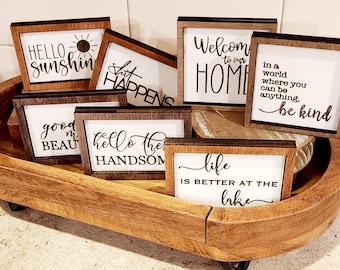 HELLO
Sunshin
Shit
HAPPENS
Welcome
to our
HOME
in a
world
where you
can be
anything,
be kind
good
m
BEAU
hello the
HANDSOM
life
IS BETTER AT THE
lake